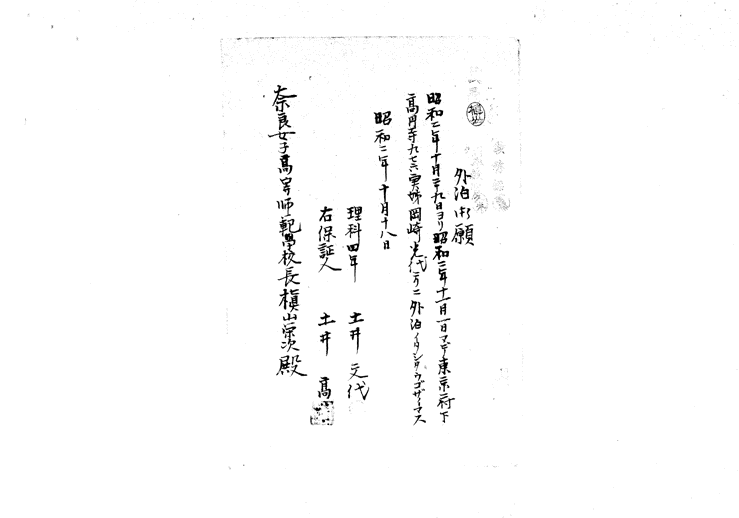 外泊御願
昭和二年十月二十九日ヨリ昭和二年十一月一日マデ東京府下
高円寺九七六実姉岡崎光代方ニ外泊イタシタウゴザイマス
昭和二年十月十八日
理科四年 土井文代
右保証人 土井高
奈良女子高等師範學校長槇山榮次殿